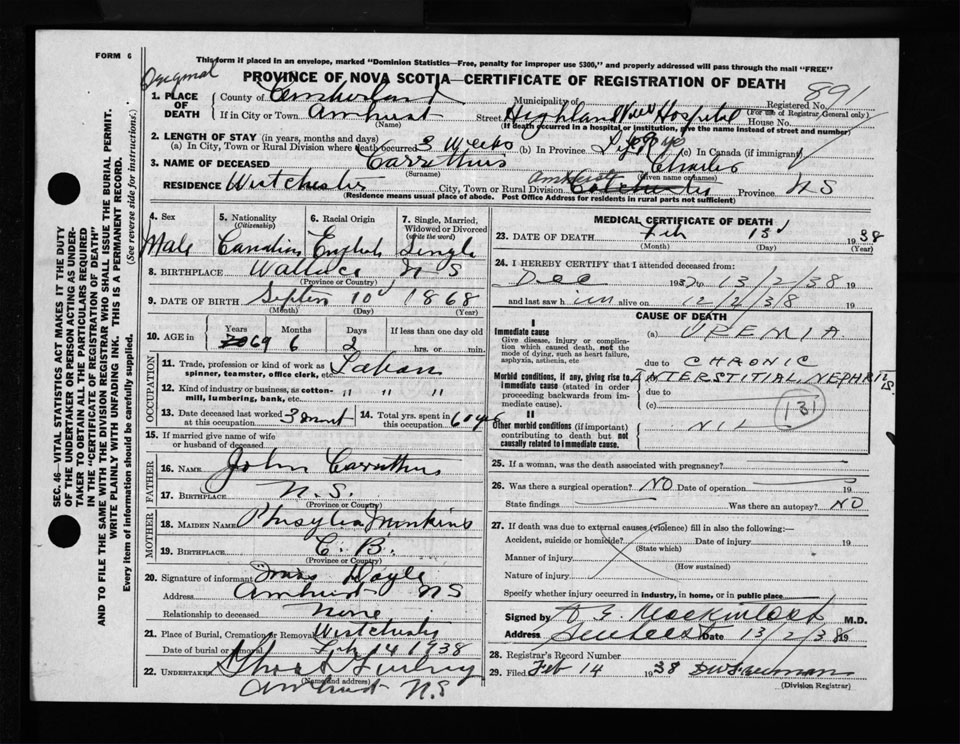 FORM 6
This form if placed in an envelope, marked "Dominion Statistics—Free, penalty for improper use $300," and properly addressed will pass through the mail "FREE"
Original
PROVINCE OF NOVA SCOTIA—CERTIFICATE OF REGISTRATION OF DEATH
891
1. PLACE OF DEATH County of Cumberland Municipality of Registered No.
(For use of Registrar General only)
If in City or Town Amherst Street Highland View Hospital House No.
(Name) (If death occurred in a hospital or institution, give the name instead of street and number)
2. LENGTH OF STAY (in years, months and days)
(a) In City, Town or Rural Division where death occurred 3 Weeks (b) In Province Life (c) In Canada (if immigrant)
3. NAME OF DECEASED Carruthers Charles
(Surname) (Given name or names)
Amherst
RESIDENCE Westchester City, Town or Rural Division Colchester Province N S
(Residence means usual place of abode. Post Office Address for residents in rural parts not sufficient)
4. Sex 5. Nationality (Citizenship) 6. Racial Origin 7. Single, Married, Widowed or Divorced (write the word)
Male Canadian English Single
8. BIRTHPLACE Wallace N S
(Province or Country)
9. DATE OF BIRTH Septem 10 1868
(Month) (Day) (Year)
10. AGE in Years Months Days If less than one day old
70 69 6 2 hrs. or min.
OCCUPATION
11. Trade, profession or kind of work as spinner, teamster, office clerk, etc.
12. Kind of industry or business, as cotton-mill, lumbering, bank, etc. " " "
13. Date deceased last worked at this occupation 14. Total yrs. spent in this occupation 60 yrs
15. If married give name of wife or husband of deceased
FATHER
16. NAME John Carruthers
17. BIRTHPLACE N. S.
(Province or Country)
MOTHER
18. MAIDEN NAME
19. BIRTHPLACE C. B.
(Province or Country)
20. Signature of informant Mrs Doyle
Address Amherst N S
Relationship to deceased None
21. Place of Burial, Cremation or Removal Westchester
Date of burial or removal Feb 14 1938
22. UNDERTAKER
(Name and address)
Amherst N.S
MEDICAL CERTIFICATE OF DEATH
23. DATE OF DEATH Feb 13 1938
(Month) (Day) (Year)
24. I HEREBY CERTIFY that I attended deceased from:
Dec 1937 to 13/2/38 19
and last saw him alive on 12/2/38 19
CAUSE OF DEATH
I
Immediate cause
Give disease, injury or complication which caused death, not the mode of dying, such as heart failure, asphyxia, asthenia, etc.
(a) UREMIA
due to CHRONIC
Morbid conditions, if any, giving rise to immediate cause (stated in order proceeding backwards from immediate cause).
INTERSTITIAL NEPHRITIS
due to
(c)
131
II
Other morbid conditions (if important) contributing to death but not causally related to immediate cause.
NIL
25. If a woman, was the death associated with pregnancy?
26. Was there a surgical operation? NO Date of operation 19
State findings Was there an autopsy? NO
27. If death was due to external causes (violence) fill in also the following:—
Accident, suicide or homicide? Date of injury 19
(State which)
Manner of injury
(How sustained)
Nature of injury
Specify whether injury occurred in industry, in home, or in public place
Signed by M.D.
Address Date 13/2/38 19
28. Registrar's Record Number
29. Filed Feb 14 1938
(Division Registrar)
SEC. 46—VITAL STATISTICS ACT MAKES IT THE DUTY
OF THE UNDERTAKER OR PERSON ACTING AS UNDER-
TAKER TO OBTAIN ALL THE PARTICULARS REQUIRED
IN THE "CERTIFICATE OF REGISTRATION OF DEATH"
AND TO FILE THE SAME WITH THE DIVISION REGISTRAR WHO SHALL ISSUE THE BURIAL PERMIT.
WRITE PLAINLY WITH UNFADING INK. THIS IS A PERMANENT RECORD.
Every item of information should be carefully supplied. (See reverse side for instructions.)